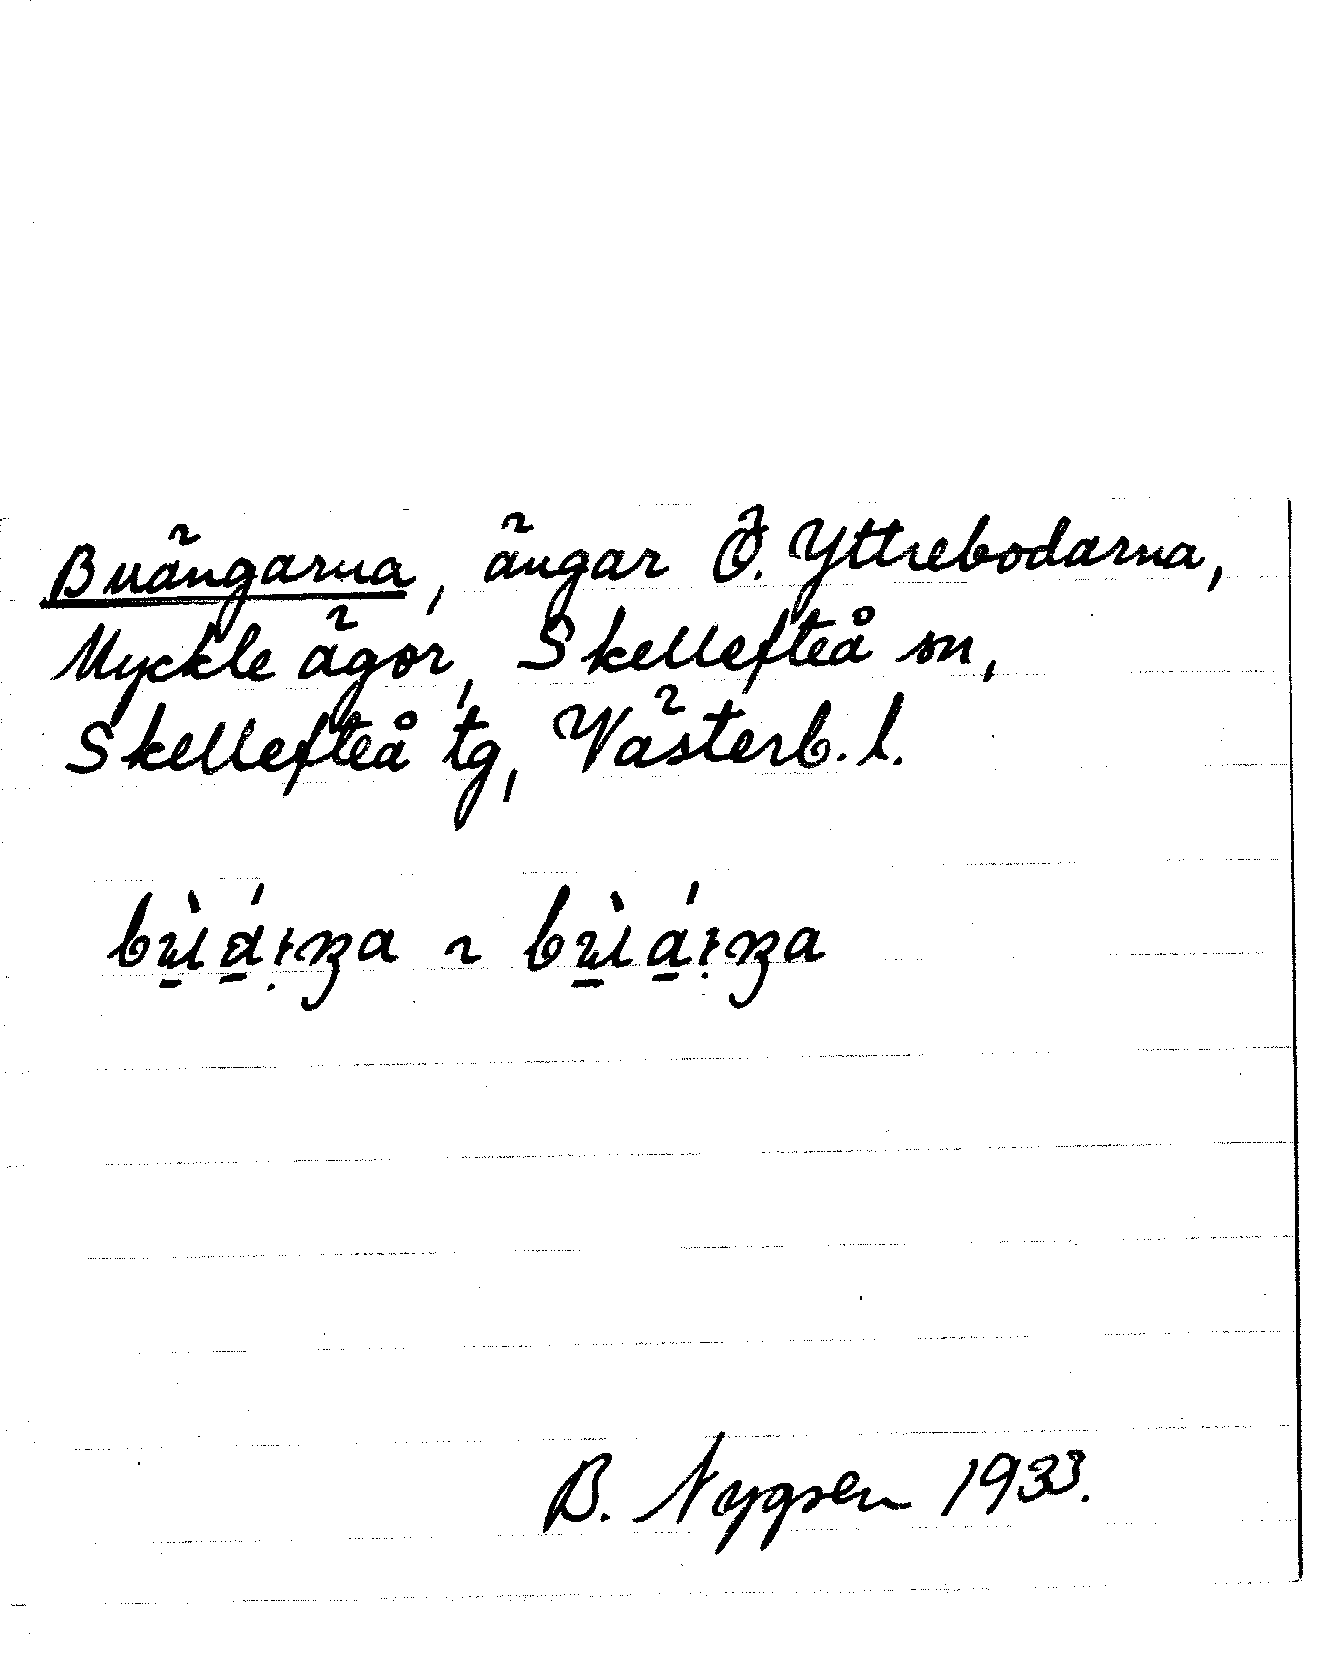 Buängarna, ängar Ö. Yttrebodarna,
Myckle ägor, Skellefteå sn,
Skellefteå tg, Västerb. l.
B. Nygren 1933.